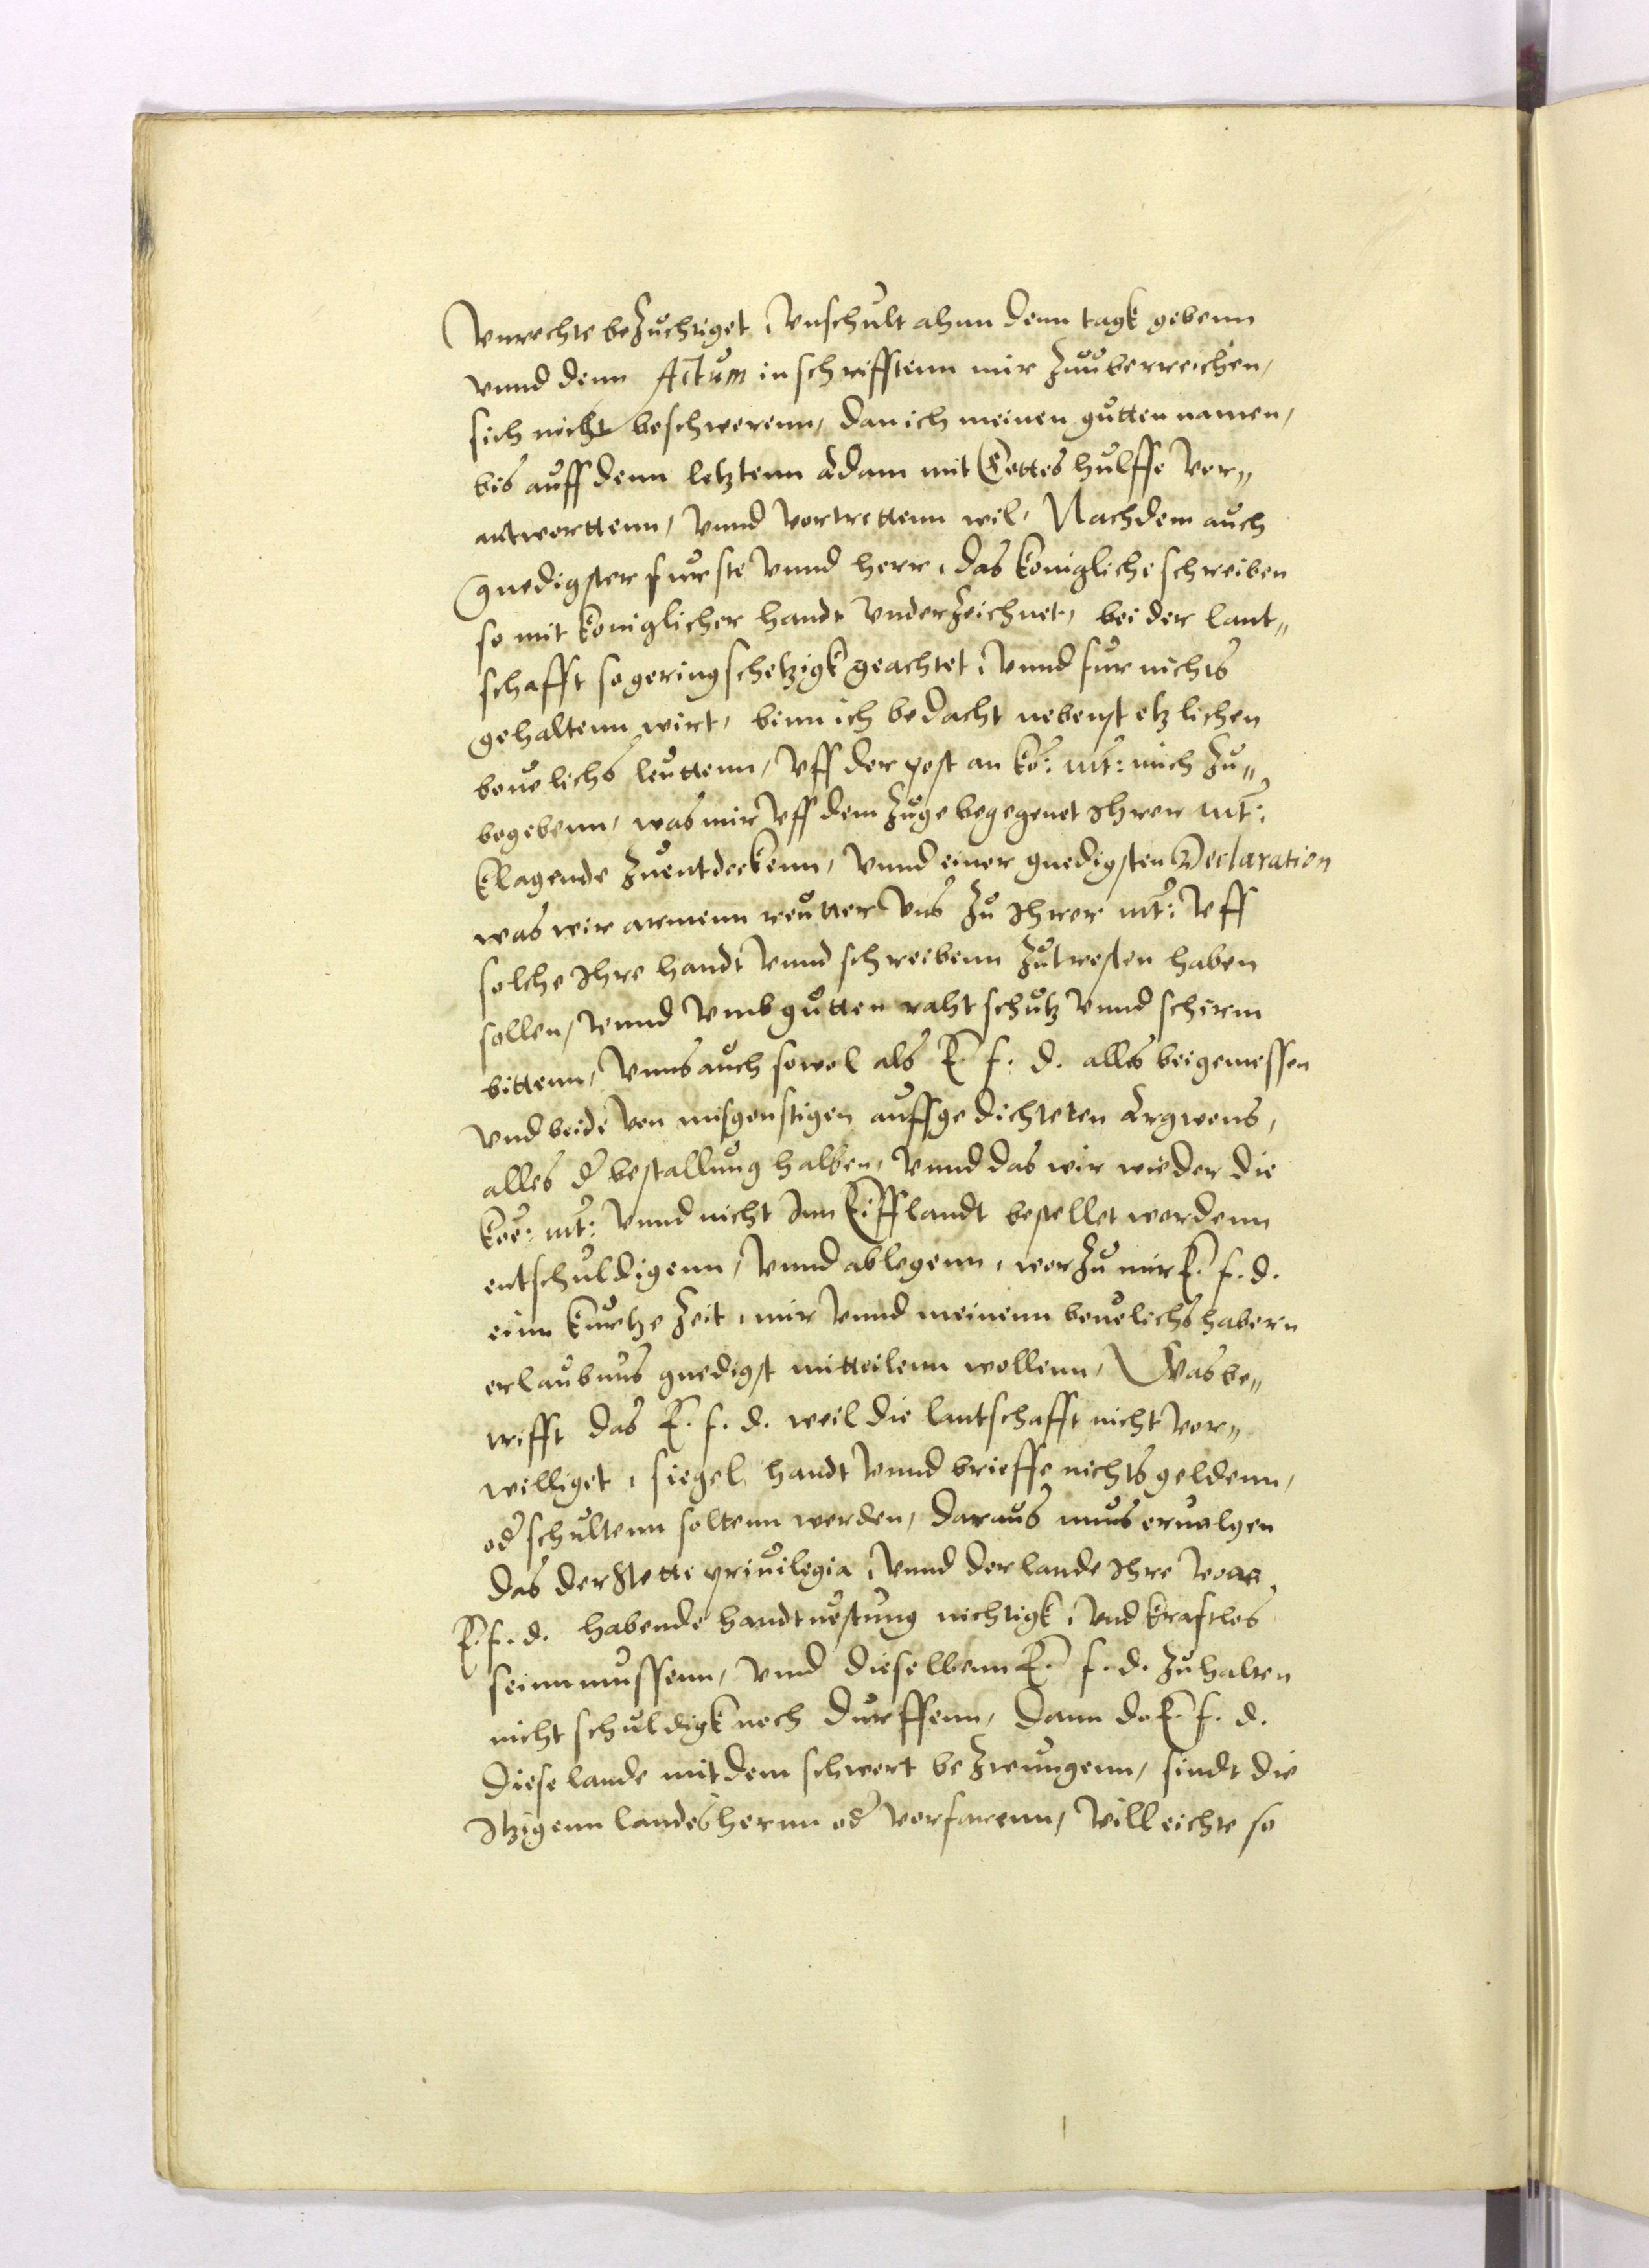 Vnrechte beZuchtiget, Vnschult ahnn denn tagk gebenn
vnnd denn Actum in schrifftenn mir Zuuberreichen,
sich nicht beschwerenn, dan ich meinen gutten namen,
bis auff denn letztenn Adam mit Gottes hulffe Ver„
antworttenn, Vnnd Vertrettenn wil, Nachdem auch
Gnedigster furste Vnnd herr, das konigliche schreiben
so mit koniglicher handt VnderZeichnet, bei der lant„
schafft so geringschetzigk geachtet, Vnnd fur nichts
gehaltenn wirt, binn ich bedacht nebenst etzlichen
beuelichs leuttenn, Vff der post an ko: Mt: mich Zu„
begebenn, was mir Vff dem Zuge begegenet Ihrer Mt:
klagende Zuentdeckenn, Vnnd einer gnedigsten Declaration
was wir armenn reutter Vns Zu Ihrer Mt: Vff
solche Ihre handt Vnnd schreibenn Zutrosten haben
sollen, Vnnd Vmb gutten raht schutz Vnnd schirm
bittenn, Vnns auch sowol als E. f. d. alles beigemessen
Vnd beide Von misgonstigen auffgedichteten Argwons,
alles d bestallung halben, Vnnd das wir wieder die
koe: Mt: Vnnd nicht Inn Eifflandt bestellet wordenn
entschuldigenn, Vnnd ablegenn, worZu mir E. f. d.
einn kurtze Zeit, mir Vnnd meinenn beuelichshabern
erlaubnus gnedigst mitteilenn wollenn, Was be„
trifft das E. f. d. weil die lantschafft nicht Ver„
williget, siegel handt Vnnd brieffe nichts geldenn,
od schultenn soltenn werden, daraus mus eruolgen
das der Stette priuilegia, Vnnd der lande Ihre Von
E. f. d. habende handtuestung nichtigk, Vnd krafftlos
seinn mussenn, Vnnd dieselbenn E. f. d. Zuhalten
nicht schuldigk noch durffenn, Dann do E. f. d.
Diese lande mit dem schwert beZwungenn, sindt die
Itzigenn landesherrnn od Vorfarenn, Villeichte so